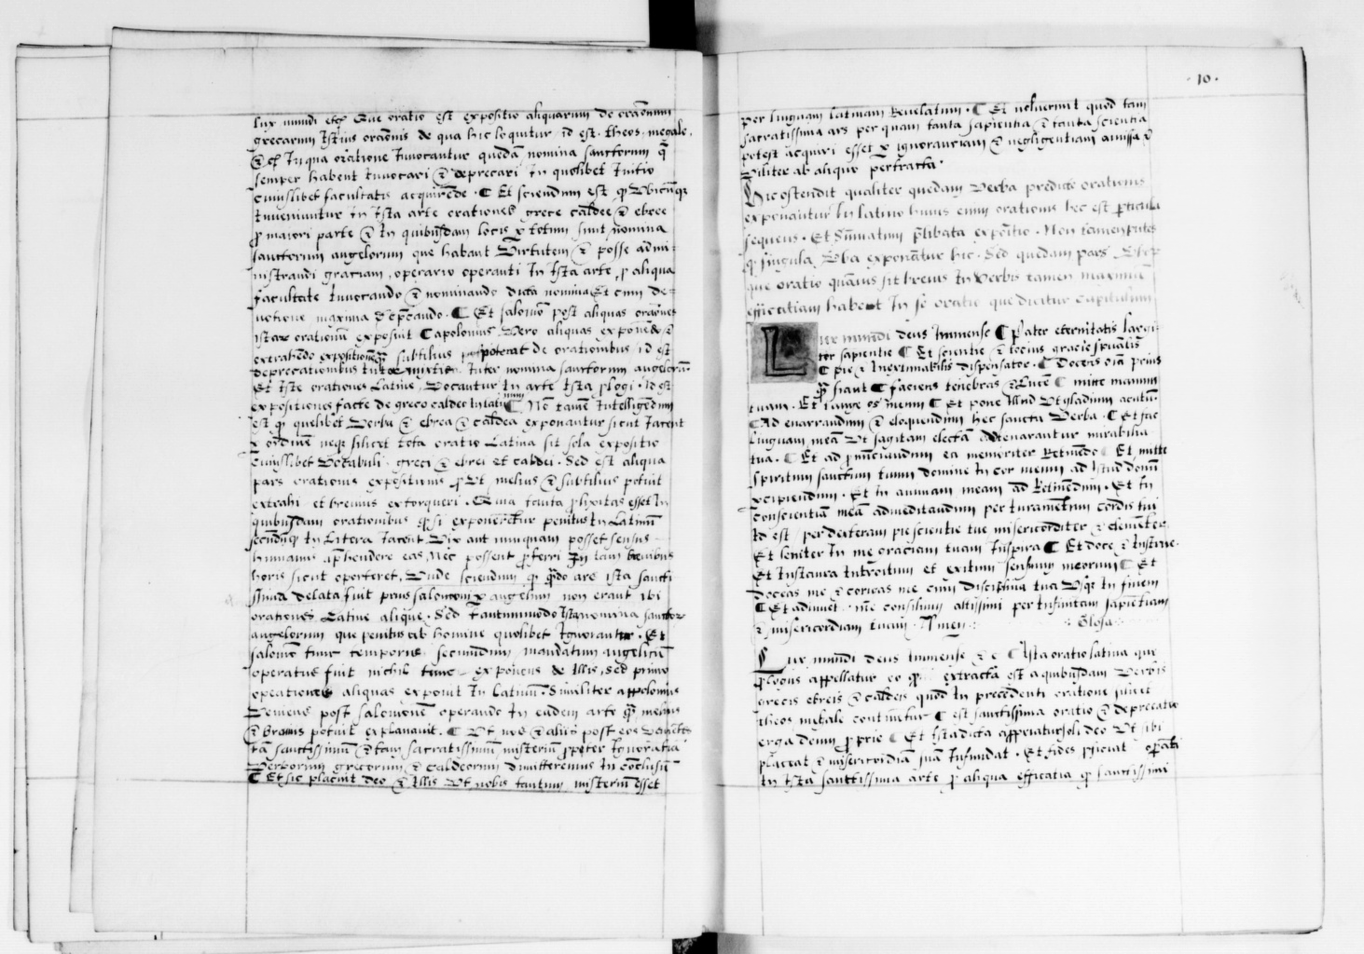 lux mundi etc̄ Que oratio est expositio aliquarum de oraōnum
grecarum Istius oraōnis de qua hic loquitur, id est. theos. megale.
In qua oratione Invocantur quedā nomina sanctorum q̄
semper habent Invocari & deprecari In quolibet Initio
cuiuslibet facultatis acquirēde. ¶ Et sciendum est qꝫ Ubicūqꝫ
Inveniuntur In Ista arte orationes grece caldee & ebree
ꝓ maiori parte & In quibusdam locis totum sunt nomina
sanctorum angelorum que habent Virtutem & posse admi-
nistrandi graciam, operario operanti In Ista arte, ꝓ aliqua
facultate Invocando & nominando dicta nomina Et cum de-
votione maxima dep̄cando. ¶ Et salomō post aliquas oraōnes
Istarū orationum exposuit ¶ apolonius Vero aliquas exponēdo &
extrahēdo expositiones subtilius poterat de orationibus, id est
deprecationibus Intermixtis Inter nomina sanctorum angelorū
Et Iste orationes Latine, Vocantur In arte Ista ꝓlogi. Id est
expositiones facte de greco caldeo In latinum ¶ Nō tamē Intelligendum
est qꝫ quelibet Verba & ebrea & caldea exponantur sicut Iacent
ordinē neqꝫ scilicet tota oratio Latina sit sola expositio
cuiuslibet Vocabuli. greci & ebrei et caldei. Sed est aliqua
pars orationis expositiuus ꝓ Ut melius & subtilius potuit
extrahi et brevius extorqueri. Quia tanta ꝓlixitas esset In
quibusdam orationibus si exponerētur penitus In Latinū
secūdū In Litera Iacent Vix aut nunquam posset sensus
humanus apꝰhendere eas, Nec possent ꝓferri In tam brevibus
horis sicut oporteret, Unde sciendum qꝫ qn̄do ars Ista sancti
ssima delata fuit prius salomoni angelum non erant ibi
orationes Latine alique. Sed tantummodo Ista nomina sanctor
angelorum que penitus ab homine quolibet Ignorantur. Et
salomō tunc temporis secundum mandatum angelicū
operatus fuit nichil tunc exponens & Illis, sed primo
operationes aliquas exposuit In Latinū. Similiter appolonius
Veniens post salomonē operando In eadem arte melius
& brevius potuit explanavit. ¶ Ut nos & aliis post eos Venientes
tā sanctissimū & tam sacratissimū misterium ꝓpter Ignorātiā
Verborum grecorum & caldeorum dimitteremus In cōclusū
¶ Et sic placuit deo & Illis Ut nobis tantum misterium esset
. 10 .
per linguam latinam Revelatum. ¶ Et noluerunt quod tam
sacratissima ars per quam tanta sapientia & tanta scientia
potest acquiri esset ignoranciam & negligentiam amissa &
Viliter ab aliquo pertracta.
Hic ostendit qualiter quedam Verba predicte orationis
exponantur In latino huius enim orationis hec est ꝑticula
sequens. Et sūmatim ꝑlibata expōitio. Non tamen putes
qꝫ singula Vba exponātur hic. Sed quedam pars
que oratio quāvis sit brevis In Verbis tamen maximā
efficatiam habent In se oratio que dicitur capitulum
Lux mundi deus Immense ¶ Pater eternitatis largi-
tor sapientie ¶ Et scientie & tocius gracie spūalis
¶ pie & Inextimabilis dispensator. ¶ Docens oīa prius
q̄ fiant ¶ faciens tenebras & Lucē ¶ mitte manum
tuam. Et tange os meum ¶ Et pone Illud Ut gladium acutū
¶ Ad enarrandum & eloquendum hec sancta Verba. ¶ Et fac
linguam meā Ut sagitam electā Ad enarantur mirabilia
tua. ¶ Et ad ꝓnūciandum ea memoriter Retinēdo ¶ Et mitte
spiritum sanctum tuum domine In cor meum ad Istud donū
ꝑcipiendum. Et In animam meam ad Retinēdum. Et In
conscientiā meā ad meditandum per Iuramētum cordis tui
Id est, per dexteram pie scientie tue misericorditer, & clemēter
Et leniter In me graciam tuam Inspira ¶ Et doce & Instrue.
Et Instaura Introitum et exitum sensuum meorum ¶ Et
doceas me & corrigas me cum Disciplina tua Usqꝫ In finem
¶ Et adiuvet. me consilium altissimi per Infinitam sapientiam
& misericordiam tuam. Amen.
Glosa.
Lux mundi deus Immense & c̄ ¶ Ista oratio latina que
ꝓlogus appellatur eo qꝫ extracta est a quibusdam Verbis
grecis ebreis & caldeis quod In precedenti oratione
theos megale continetur ¶ est sanctissima oratio & deprecatio
erga deum ꝓprie ¶ Et Ista dicta appropriatur soli deo Ut sibi
placeat & misericordiā suā Infundat. Et fides
In Ista sanctissima arte ꝓ aliqua efficatia qꝫ sanctissimi